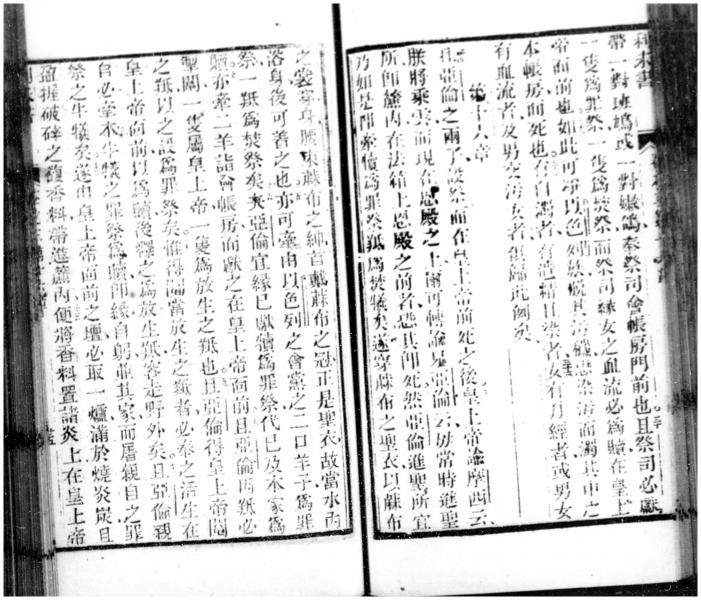 利未書
帶一對班鳩或一對嫩鴿奉祭司會帳房門前也且祭司必獻
一隻爲罪祭一隻爲焚祭而祭司緣女之血流必爲贖在皇上
帝面前也如此可導以色列族離其污穢恐染污而濁其中之
本帳房而死也有白濁者有遺精且染者女有月經者或男女
有血流者及男交污女者俱歸此例矣
第十六章
且亞倫之兩子獻祭而在皇上帝前死之後皇上帝諭摩西云
朕將乘雲而現在恩殿之上爾可轉諭兄亞倫云毋常時進聖
所卽簾內在法箱上恩殿之前者恐其卽死然亞倫進聖所宜
乃如是卽牽犢爲罪祭羝爲焚犧矣遂穿蔴布之聖衣以蔴布
之裳穿身腰束蔴布之紳首戴蔴布之冠正是聖衣故當水內
浴身後可着之也亦可牽由以色列之會黨之二口羊子爲罪
祭一羝爲焚祭矣夫亞倫宜緣己獻犢爲罪祭代己及本家爲
贖亦牽二羊詣會帳房而獻之在皇上帝面前且亞倫因羝必
掣鬮一隻屬皇上帝一隻爲放生之羝也且亞倫得皇上帝鬮
之羝以之設爲罪祭矣惟得鬮當放生之羝者必奉之活生在
皇上帝面前以爲贖後釋之爲放生羝客走野外矣且亞倫親
自必牽本牛犧之罪祭爲贖卽緣自躬並其家而屠親自之罪
祭之牛犧矣遂由皇上帝面前之壇必取一爐滿於燒炎炭且
盈握破碎之馥香料帶進簾內便將香料置諸炎上在皇上帝